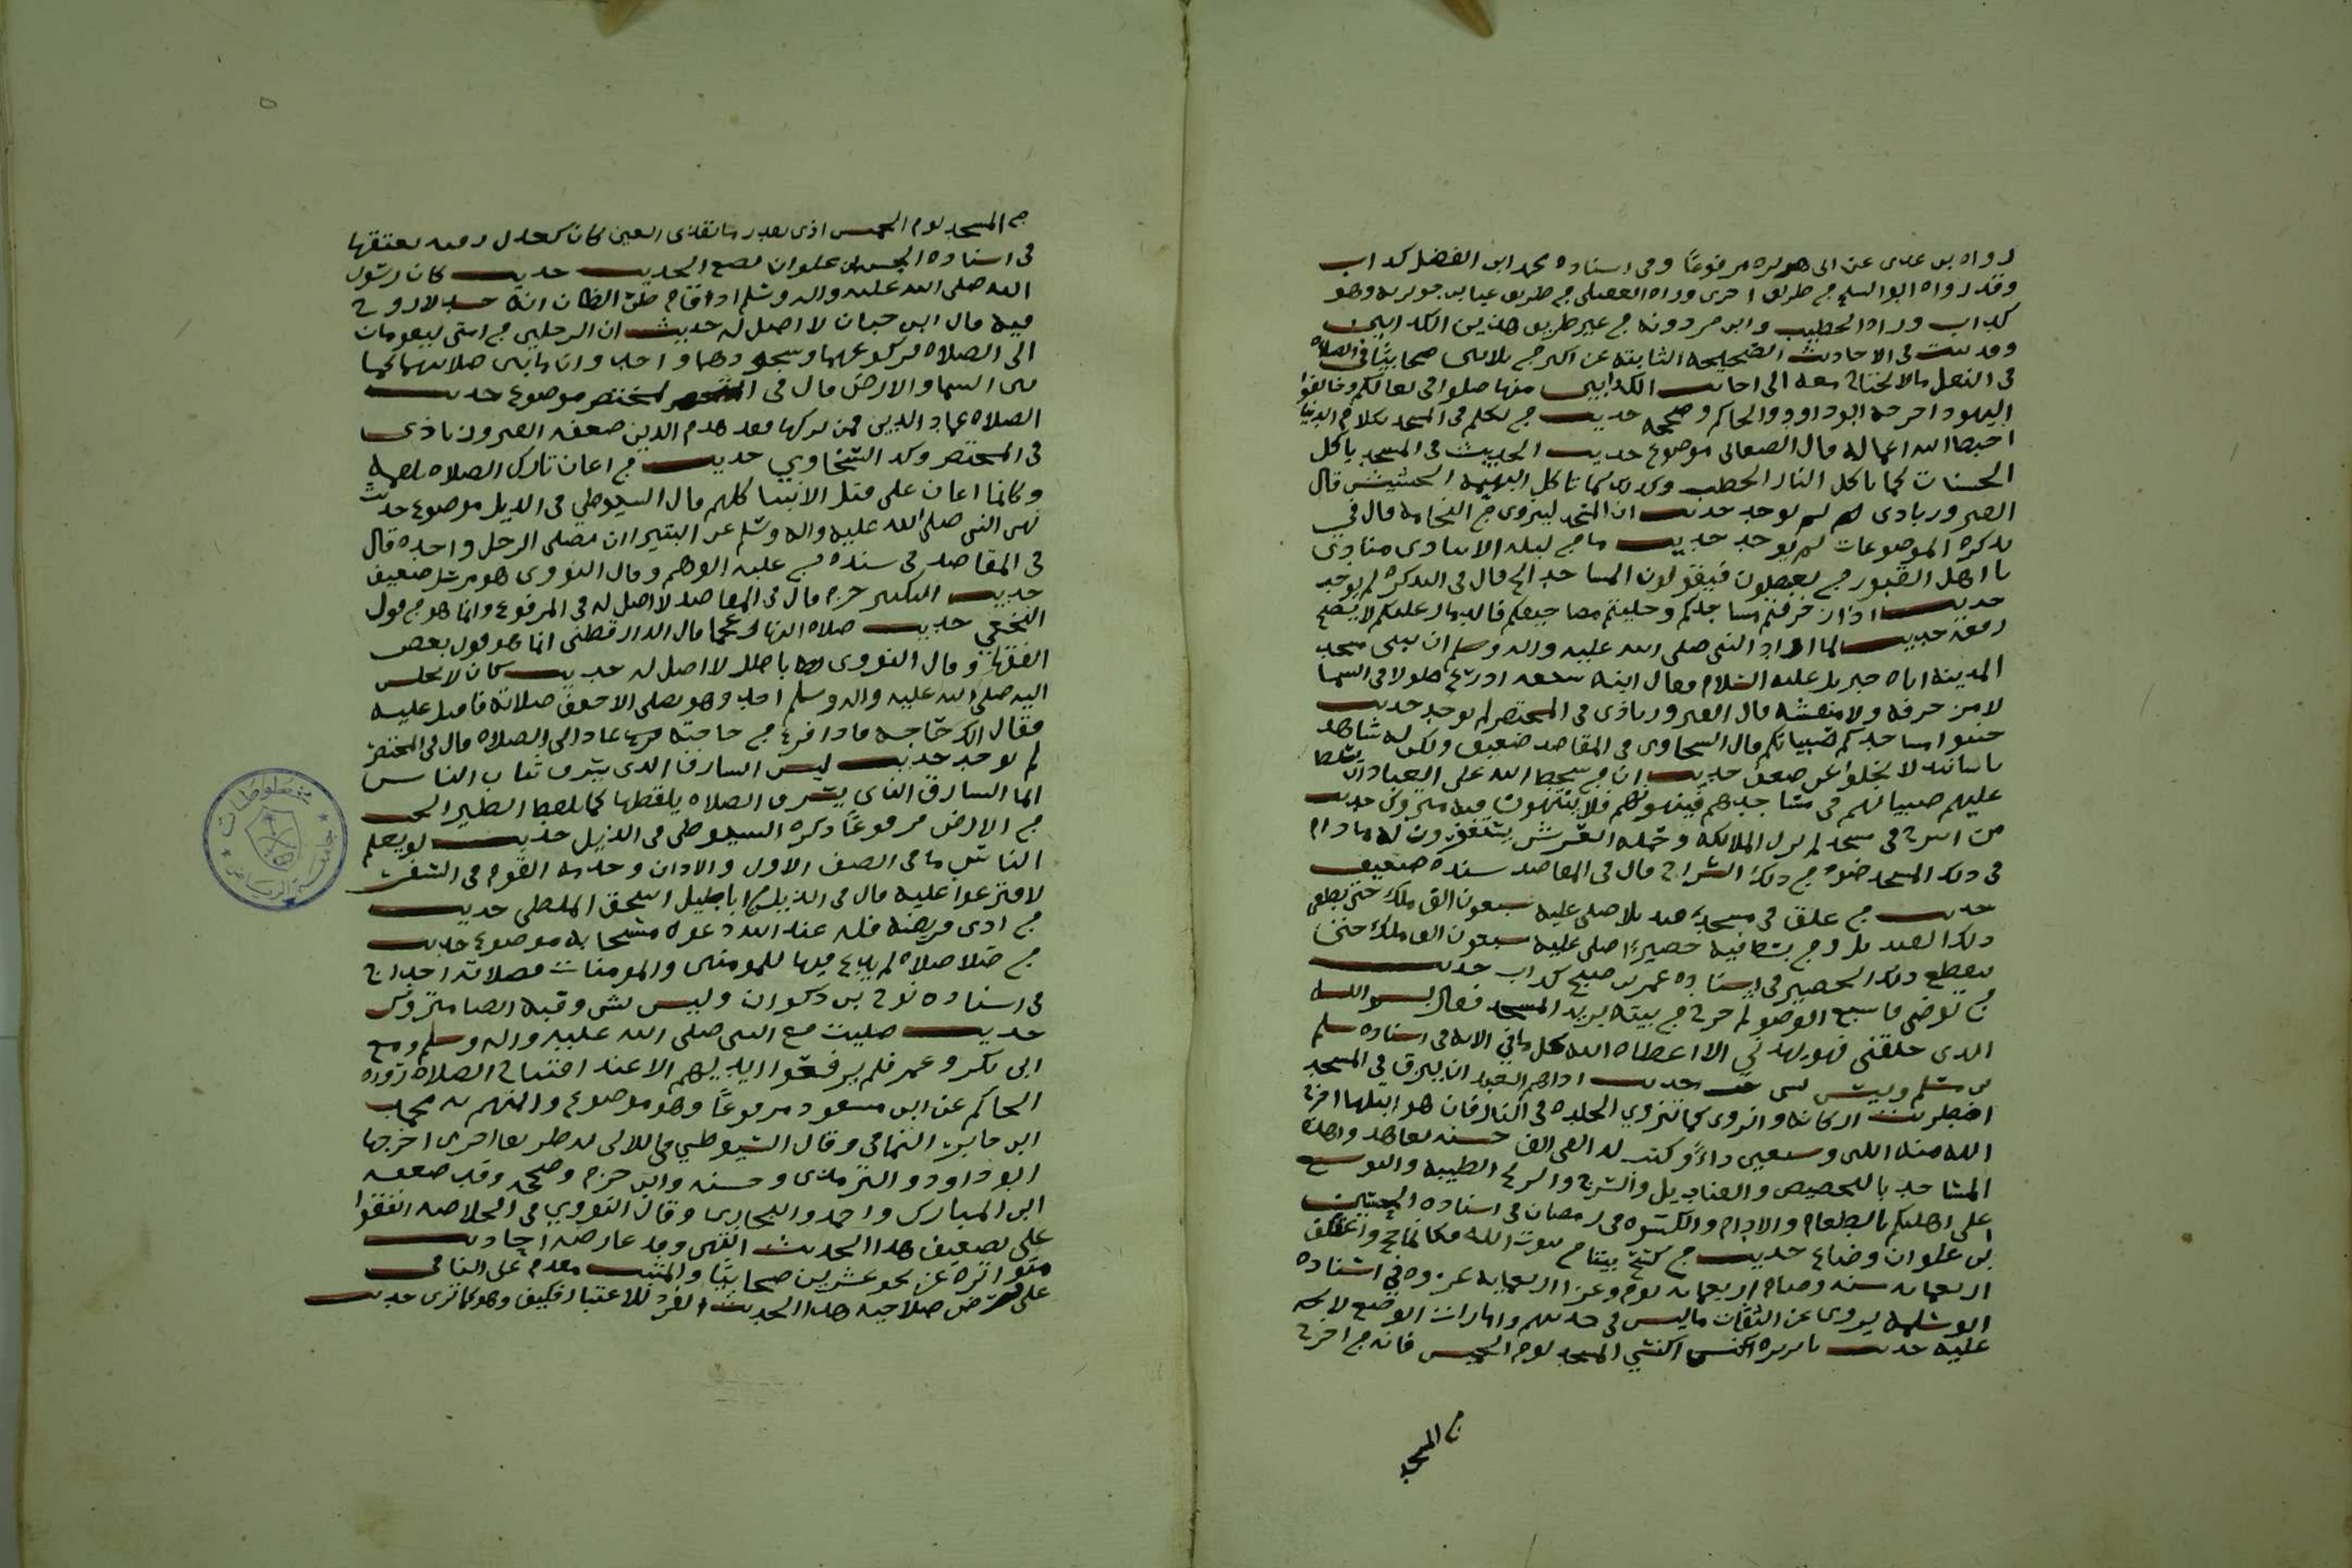 رواه بن عدى عن ابى هريره مرفوعًا وفى اسناده محمد ابن الفضل كذاب
وقد رواه ابو الشيخ من طريق اخرى ورواه العقيلى من طريق عباد بن جويريه وهو
كذاب ورواه الخطيب وابن مردويه من غير طريق هذين الكذابين
وقد ثبت فى الاحاديث الصحيحه الثابته عن اكثر من ثلاثين صحابيًا فى الصلاه
فى النعل مالا يحتاج معه الى احاديث الكذابين منها صلوا فى نعالكم وخالفوا
اليهود اخرجه ابو داود والحاكم وصححه حديث من تكلم فى المسجد بكلام الدنيا
احبط الله اعماله قال الصغانى موضوع حديث الحديث فى المسجد ياكل
الحسنات كما تاكل النار الحطب وكما تاكل البهيمه الحشيش قال
الفيروزبادى لم يوجد حديث ان المسجد لينزوى من النخامه قال في
تذكره الموضوعات لم يوجد حديث ما من ليله الا ينادى منادى
يا اهل القبور من تغبطون فيقولون اهل المساجد الخ قال فى التذكره لم يوجد
حديث اذا زخرفتم مساجدكم وحليتم مصاحفكم فالدمار عليكم لا يصح
رفعه حديث لما اراد النبى صلى الله عليه واله وسلم ان يبنى مسجد
المدينه اتاه جبريل عليه السلام فقال ابنه سبعه اذرع طولا فى السما
لا تزخرفه ولا تنقشه قال الفيروزباذى فى المختصر لم يوجد حديث
جنبوا مساجدكم صبيانكم قال السخاوى فى المقاصد ضعيف ولكن له شاهد
باسانيد لا يخلوا عن ضعف حديث ان من سخط الله على العباد ان يسلط
عليهم صبيانهم فى مساجدهم فينهونهم فلا ينتهون فيه متروك حديث
من اسرج فى مسجد لم تزل الملائكه وحمله العرش يستغفرون له ما دام
فى ذلك المسجد ضوء من ذلك السراج قال فى المقاصد سنده ضعيف
حديث من علق فى مسجد قنديلا صلى عليه سبعون الف ملك حتى يطفى
ذلك القنديل ومن بسط فيه حصيرًا صلى عليه سبعون الف ملك حتى
يتقطع ذلك الحصير فى اسناده عمر بن صبح كذاب حديث
من توضى فاسبغ الوضو ثم خرج من بيته يريد المسجد فقال بسم الله
الذى خلقنى فهو يهدين الا اعطاه الله كل ما فى الايه فى اسناده سلم
بن سلم وليس بشى حديث اذا هم العبد ان يبزق فى المسجد
اضطربت اركانه وانزوى كما تنزوي الجلده فى النار فان هو ابتلعها اخرج
الله منه اثنين وسبعين داءً وكتب له الفى الف حسنه
المساجد بالتجصيص والقناديل والسرج والريح الطيبه والتوسع
على اهليكم بالطعام والادام والكسوه فى رمضان فى اسناده الحسين
بن علوان وضاع حديث من كنس بيتا من بيوت الله فكانما حج واعتكف
اربعمايه سنه وصام اربعمايه يوم وغزا اربعمايه غزوه في اسناده
ابو سلمه يروى عن الثقات ما ليس فى حديثهم وامارات الوضع لايحه
عليه حديث يا بريره اكنسى المسجد يوم الخميس فانه من اخرج
من المسجد
من المسجد يوم الخميس اذى بقدر ما تقذى العين كان كعدل رقبه يعتقها
فى اسناده الحسن بن علوان يضع الحديث حديث كان رسول
الله صلى الله عليه واله وسلم اذا قام ظن الظان انه جسد لا روح
فيه قال ابن حبان لا اصل له حديث ان الرجلين من امتى ليقومان
الى الصلاه فركوعهما وسجودهما واحد وان ما بين صلاتهما كما
بين السما والارض قال فى المختصر موضوع حديث
الصلاه عماد الدين فمن تركها فقد هدم الدين ضعفه الفيروزباذى
فى المختصر وكذا السخاوي حديث من اعان تارك الصلاه بلقمه
وكانما اعان على قتل الانبيا كلهم قال السيوطى فى الذيل موضوع حديث
نهى النبى صلى الله عليه واله وسلم عن البتيرا ان يصلى الرجل واحده قال
فى المقاصد فى سنده من غلب عليه الوهم وقال النووى هو مرسل ضعيف
حديث التكبير جزم قال فى المقاصد لا اصل له فى المرفوع وانما هو من قول
النخعي حديث صلاه النهار عجما قال الدارقطنى انما هو قول بعض
الفقها وقال النووى باطل لا اصل له حديث كان لا يجلس
اليه صلى الله عليه واله وسلم احد وهو يصلى الا خفف صلاته فاقبل عليه
فقال الك حاجه فاذا فرغ من حاجته عاد الى الصلاه قال فى المختصر
لم يوجد حديث ليس السارق الذى يسرق ثياب الناس
انما السارق الذى يسرق الصلاه يلقطها كما يلقط الطير الحب
من الارض مرفوعًا ذكره السيوطى فى الذيل حديث لو يعلم
الناس ما فى الصف الاول والاذان وخدمه القوم فى السفر
لاقترعوا عليه قال فى الذيل من اباطيل اسحق الملطى حديث
من ادى فريضه فله عند الله دعوه مستجابه موضوع حديث
من صلا صلاه لم يدع فيها للمومنين والمومنات فصلاته خداج
فى اسناده نوح بن ذكوان وليس بشى وفيه ايضا متروك
حديث صليت مع النبى صلى الله عليه واله وسلم ومع
ابى بكر وعمر فلم يرفعوا ايديهم الا عند افتتاح الصلاه رواه
الحاكم عن ابن مسعود مرفوعًا وهو موضوع والمتهم به محمد
ابن جابر اليمامى وقال السيوطي فى اللالى له طريقا اخرى اخرجها
ابو داود والترمذى وحسنه وابن حزم وصححه وقد ضعفه
ابن المبارك واحمد والبخارى وقال النووي فى الخلاصه اتفقوا
على تضعيف هذا الحديث انتهى وقد عارضه احاديث
متواتره عن نحو عشرين صحابيًا والمثبت مقدم على النافى
على فرض صلاحيه هذا الحديث الفرد للاعتبار فكيف وهو كما ترى حديث